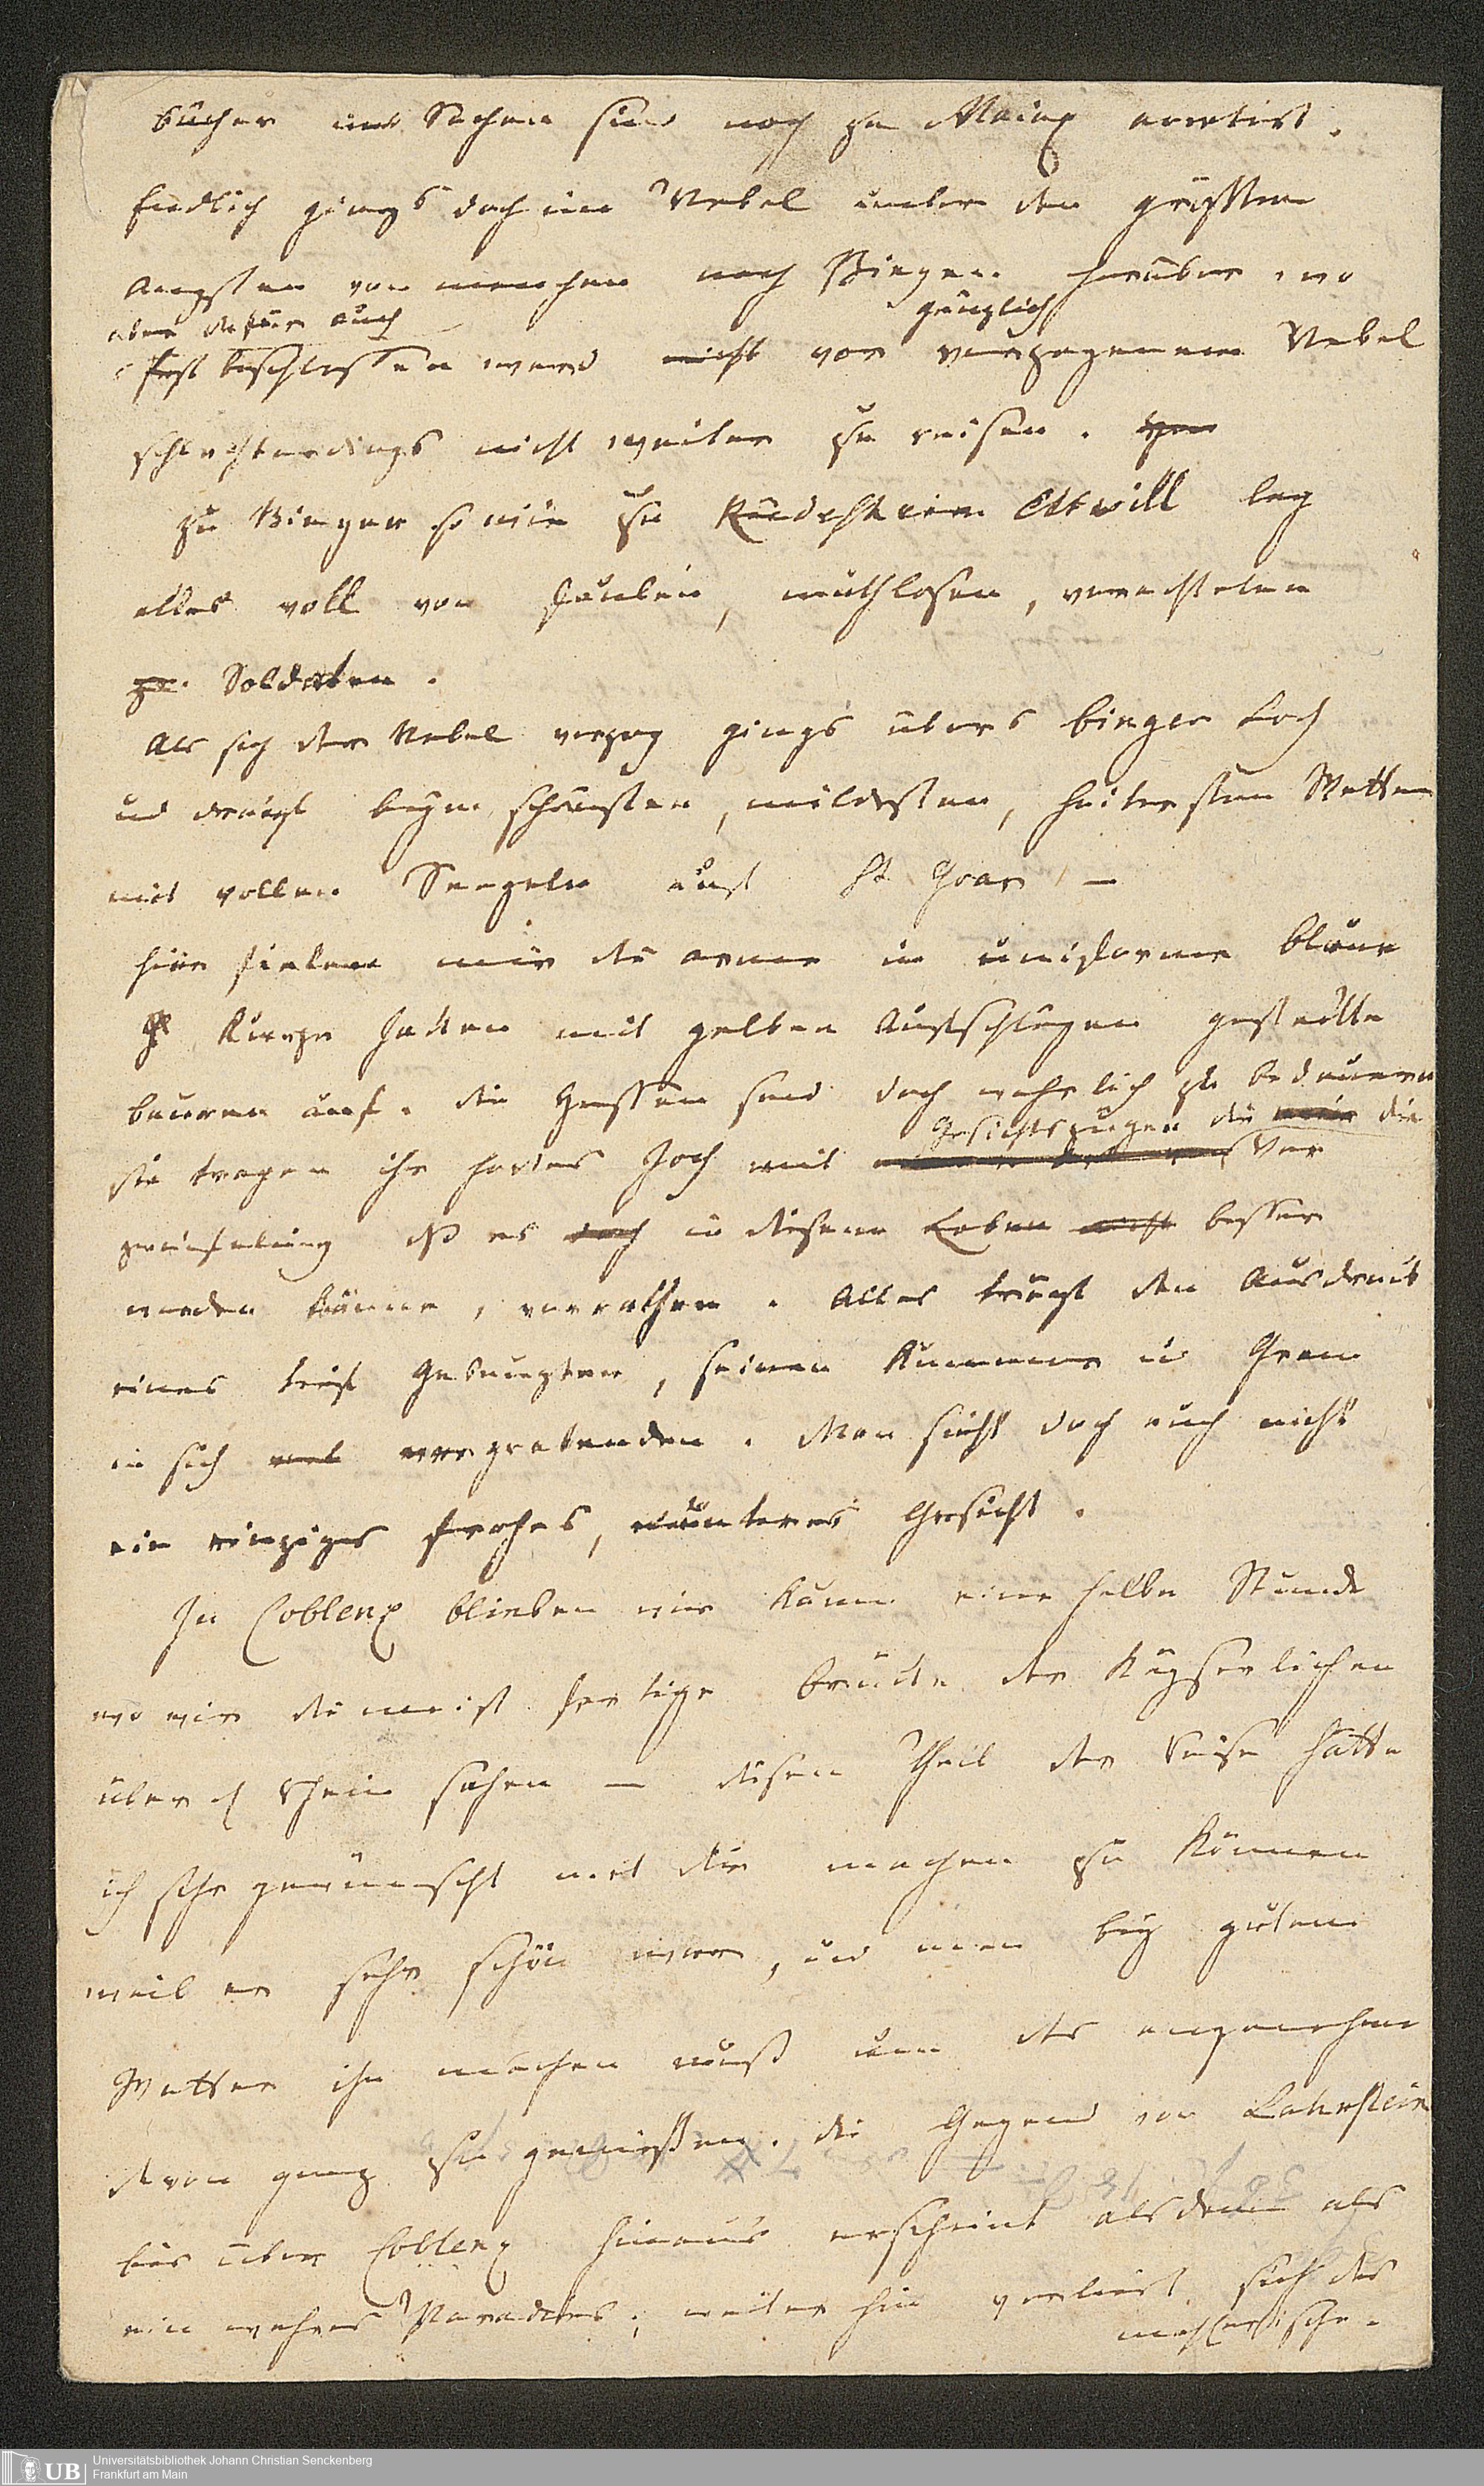 bücher und Sachen sind noch zu Mainz arretirt.
Endlich gings doch im Nebel unter den größten
Angsten von manchen nach Bingen herüber, wo
aber dafür auch gänzlich
fest beschlossen ward nicht vor verzogenem Nebel
schlechterdings nicht weiter zu reisen.
zu Bingen so wie zu Rüdesheim Ellwill lag
alles voll von faulen, muthlosen,
Soldaten.
Als sich der Nebel verzog gings übers binger Loch
und beym schönsten, mildesten, heitersten Wetter
mit vollen Seegeln auf St Goar, –
hier fielen mir die arme in uniforme blaue
kurze Jacken mit gelben Aufschlägen gesteckte
bauren auf. die Hessen sind doch wahrlich zu bedauern
sie tragen ihr hartes Joch mit Gesichtszügen die mir die Ver
zweifelung daß es doch in diesem Leben nicht besser
werden könne, verrathen. Alles trägt den Ausdruck
eines tief Gekränkten, seinen Kummer u Gram
in sich vergrabenden. Man sieht doch auch nicht
ein einziges frohes, munteres Gesicht.
In Coblenz blieben wir kaum eine halbe Stunde
wo wir die meist fertige brücke der Kayserlichen
über d Rhein sahen – diesen Theil der Reise hätte
ich sehr gewünscht mit dir machen zu können
weil er sehr schön war, und man bey gutem
Wetter ihn machen muß um das angenehme
davon ganz zu genießen. die Gegend von Lahnstein
bis über Coblenz hinaus erscheint alsdann als
ein wahres Paradies; weiter hin verliert sich das
mahlerische.